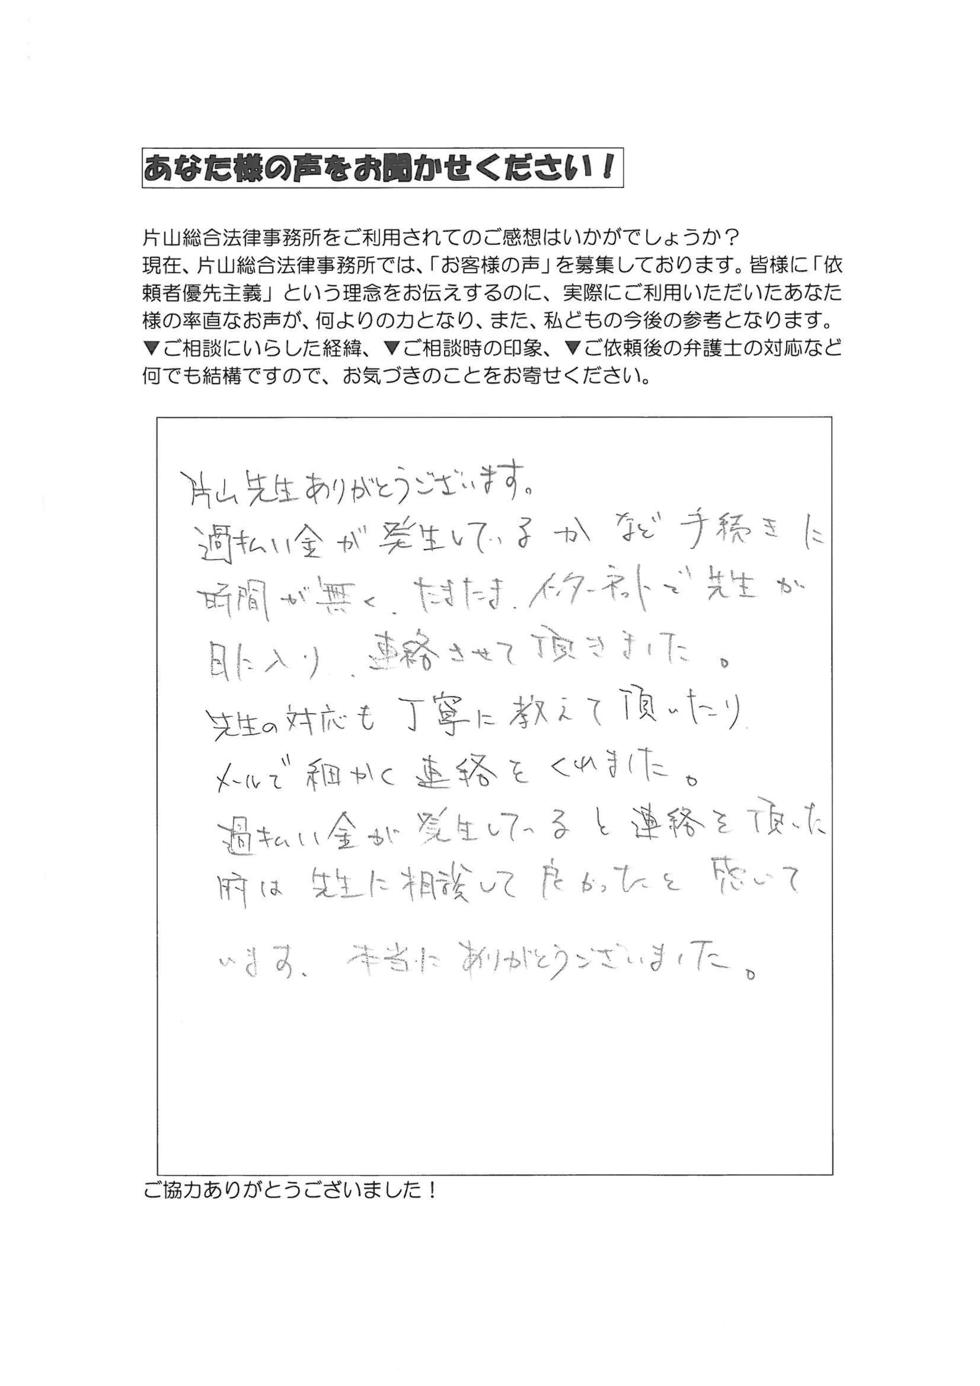 あなた様の声をお聞かせください！
片山総合法律事務所をご利用されてのご感想はいかがでしょうか？
現在、片山総合法律事務所では、「お客様の声」を募集しております。皆様に「依
頼者優先主義」という理念をお伝えするのに、実際にご利用いただいたあなた
様の率直なお声が、何よりの力となり、また、私どもの今後の参考となります。
▼ご相談にいらした経緯、▼ご相談時の印象、▼ご依頼後の弁護士の対応など
何でも結構ですので、お気づきのことをお寄せください。
片山先生ありがとうございます。
過払い金が発生しているかなど手続きに
時間が無く、たまたま、インターネットで先生が
目に入り、連絡させて頂きました。
先生の対応も丁寧に教えて頂いたり
メールで細かく連絡をくれました。
過払い金が発生していると連絡を頂いた
時は先生に相談して良かったと感じて
います、本当にありがとうございました。
ご協力ありがとうございました！